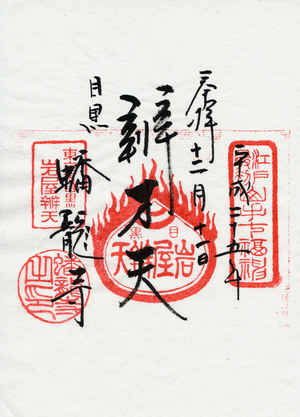 江戸最初山手七福神
平成二十五年
奉拝 十二月十一日
辨才天
目黒 岩屋辨天
目黒
蟠龍寺
東京目黒
岩屋辨天